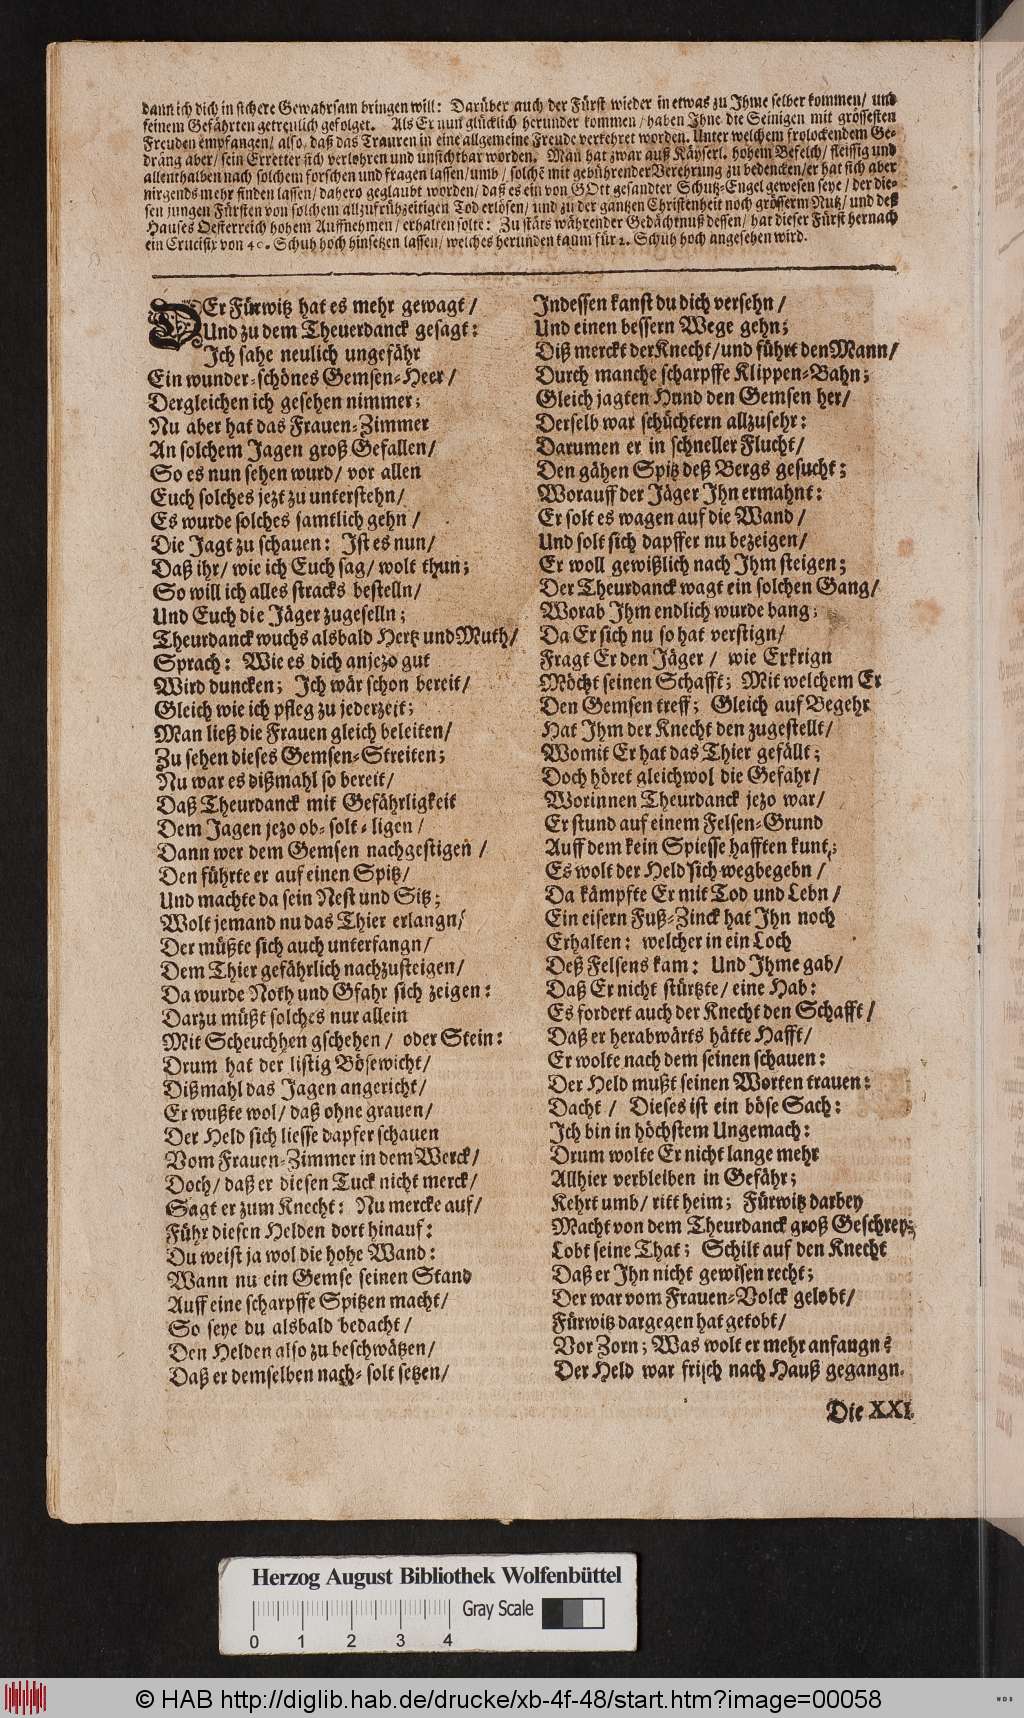 dann ich dich in sichere Gewahrsam bringen will: Darüber auch der Fürst wieder in etwas zu Ihme selber kommen/ und
seinem Gefährten getreulich gefolget. Als Er nun glücklich herunder kommen/ haben Ihne die Seinigen mit grössesten
Freuden empfangen/ also/ daß das Trauren in eine allgemeine Freude verkehret worden. Unter welchem frolockendem Ge-
dräng aber/ sein Erretter sich verlohren und unsichtbar worden. Man hat zwar auß Käyserl. hohem Befelch/ fleissig und
allenthalben nach solchem forschen und fragen lassen/ umb/ solchẽ mit gebührender Verehrung zu bedencken/ er hat sich aber
nirgends mehr finden lassen/ dahero geglaubt worden/ daß es ein von GOtt gesandter Schutz-Engel gewesen seye/ der die-
sen jungen Fürsten von solchem allzufrühzeitigen Tod erlösen/ und zu der gantzen Christenheit noch grösserm Nutz/ und deß
Hauses Oesterreich hohem Auffnehmen/ erhalten solte: Zu stäts währender Gedächtnuß dessen/ hat dieser Fürst hernach
ein Crucifix von 40. Schuh hoch hinsetzen lassen/ welches herunden kaum für 2. Schuh hoch angesehen wird.
DEr Fürwitz hat es mehr gewagt/
Und zu dem Theuerdanck gesagt:
Ich sahe neulich ungefähr
Ein wunder-schönes Gemsen-Heer/
Dergleichen ich gesehen nimmer;
Nu aber hat das Frauen-Zimmer
An solchem Jagen groß Gefallen/
So es nun sehen wurd/ vor allen
Euch solches jezt zu unterstehn/
Es wurde solches samtlich gehn/
Die Jagt zu schauen: Ist es nun/
Daß ihr/ wie ich Euch sag/ wolt thun;
So will ich alles stracks bestelln/
Und Euch die Jäger zugeselln;
Theurdanck wuchs alsbald Hertz und Muth/
Sprach: Wie es dich anjezo gut
Wird duncken; Ich wär schon bereit/
Gleich wie ich pfleg zu jederzeit;
Man ließ die Frauen gleich beleiten/
Zu sehen dieses Gemsen-Streiten;
Nu war es dißmahl so bereit/
Daß Theurdanck mit Gefährligkeit
Dem Jagen jezo ob-solt-ligen/
Dann wer dem Gemsen nachgestigen/
Den führte er auf einen Spitz/
Und machte da sein Nest und Sitz;
Wolt jemand nu das Thier erlangn/
Der müßte sich auch unterfangn/
Dem Thier gefährlich nachzusteigen/
Da wurde Noth und Gfahr sich zeigen:
Darzu müßt solches nur allein
Mit Scheuchhen gschehen/ oder Stein:
Drum hat der listig Bösewicht/
Dißmahl das Jagen angericht/
Er wußte wol/ daß ohne grauen/
Der Held sich liesse dapfer schauen
Vom Frauen-Zimmer in dem Werck/
Doch/ daß er diesen Tuck nicht merck/
Sagt er zum Knecht: Nu mercke auf/
Führ diesen Helden dort hinauf:
Du weist ja wol die hohe Wand:
Wann nu ein Gemse seinen Stand
Auff eine scharpffe Spitzen macht/
So seye du alsbald bedacht/
Den Helden also zu beschwätzen/
Daß er demselben nach-solt setzen/
Indessen kanst du dich versehn/
Und einen bessern Wege gehn;
Diß merckt der Knecht/ und führt den Mann/
Durch manche scharpffe Klippen-Bahn;
Gleich jagten Hund den Gemsen her/
Derselb war schüchtern allzusehr:
Darumen er in schneller Flucht/
Den gähen Spitz deß Bergs gesucht;
Worauff der Jäger Ihn ermahnt:
Er solt es wagen auf die Wand/
Und solt sich dapffer nu bezeigen/
Er woll gewißlich nach Ihm steigen;
Der Theurdanck wagt ein solchen Gang/
Worab Ihm endlich wurde bang;
Da Er sich nu so hat verstign/
Fragt Er den Jäger/ wie Er krign
Möcht seinen Schafft; Mit welchem Er
Den Gemsen treff; Gleich auf Begehr
Hat Ihm der Knecht den zugestellt/
Womit Er hat das Thier gefällt;
Doch höret gleichwol die Gefahr/
Worinnen Theurdanck jezo war/
Er stund auf einem Felsen-Grund
Auff dem kein Spiesse hafften kunt;
Es wolt der Held sich wegbegebn/
Da kämpfte Er mit Tod und Lebn/
Ein eisern Fuß-Zinck hat Ihn noch
Erhalten: welcher in ein Loch
Deß Felsens kam: Und Ihme gab/
Daß Er nicht stürtzte/ eine Hab:
Es fordert auch der Knecht den Schafft/
Daß er herabwärts hätte Hafft/
Er wolte nach dem seinen schauen:
Der Held mußt seinen Worten trauen:
Dacht/ Dieses ist ein böse Sach:
Ich bin in höchstem Ungemach:
Drum wolte Er nicht lange mehr
Allhier verbleiben in Gefähr;
Kehrt umb/ ritt heim; Fürwitz darbey
Macht von dem Theurdanck groß Geschrey;
Lobt seine That; Schilt auf den Knecht
Daß er Ihn nicht gewisen recht;
Der war vom Frauen-Volck gelobt/
Fürwitz dargegen hat getobt/
Vor Zorn; Was wolt er mehr anfangn?
Der Held war frisch nach Hauß gegangn.
Die XXI.
Herzog August Bibliothek Wolfenbüttel
Gray Scale
0 1 2 3 4
© HAB http://diglib.hab.de/drucke/xb-4f-48/start.htm?image=00058